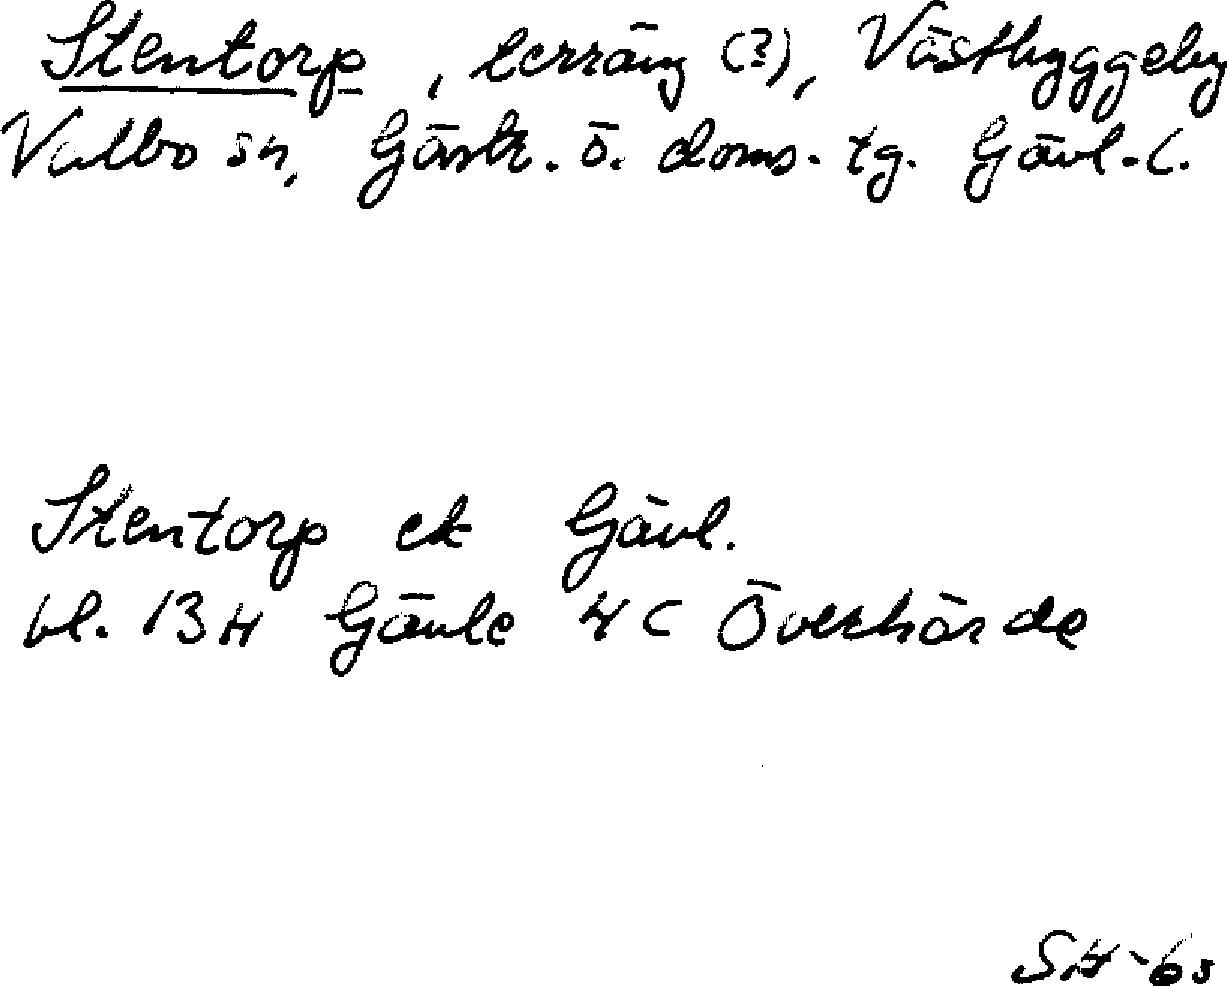 Stentorp, terräng (?), Västbyggeby
Valbo sn, Gästr. ö. doms. tg. Gävl. l.
Stentorp ek Gävl.
bl. 13H Gävle 4 C Överhärde
SH-63